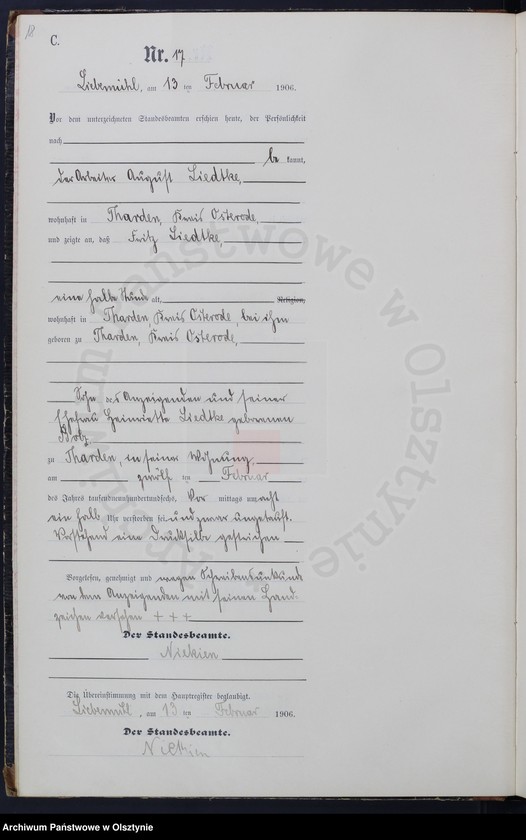 18
C.
Nr. 17
Liebemühl, am 13 ten Februar 1906.
Vor dem unterzeichneten Standesbeamten erschien heute, der Persönlichkeit
nach
be kannt,
der Arbeiter August Liedtke,
wohnhaft in Tharden, Kreis Osterode,
und zeigte an, daß Fritz Liedtke,
eine halbe Stunde alt, Religion,
wohnhaft in Tharden, Kreis Osterode, bei ihm
geboren zu Tharden, Kreis Osterode,
Sohn des Anzeigenden und seiner
Ehefrau Heinriette Liedtke geborenen
zu Tharden, in seiner Wohnung,
am zwölf ten Februar
des Jahres tausendneunhundertundsechs, Vor mittags um acht
ein halb Uhr verstorben sei und zwar ungetauft.
Vorstehend eine Drucksilbe gestrichen
Vorgelesen, genehmigt und wegen Schreibensunkunde
von dem Anzeigenden mit seinen Hand-
zeichen versehen + + +
Der Standesbeamte.
Nickien
Die Übereinstimmung mit dem Hauptregister beglaubigt.
Liebemühl, am 13 ten Februar 1906.
Der Standesbeamte.
Nickien
Archiwum Państwowe w Olsztynie
Archiwum Państwowe w Olsztynie